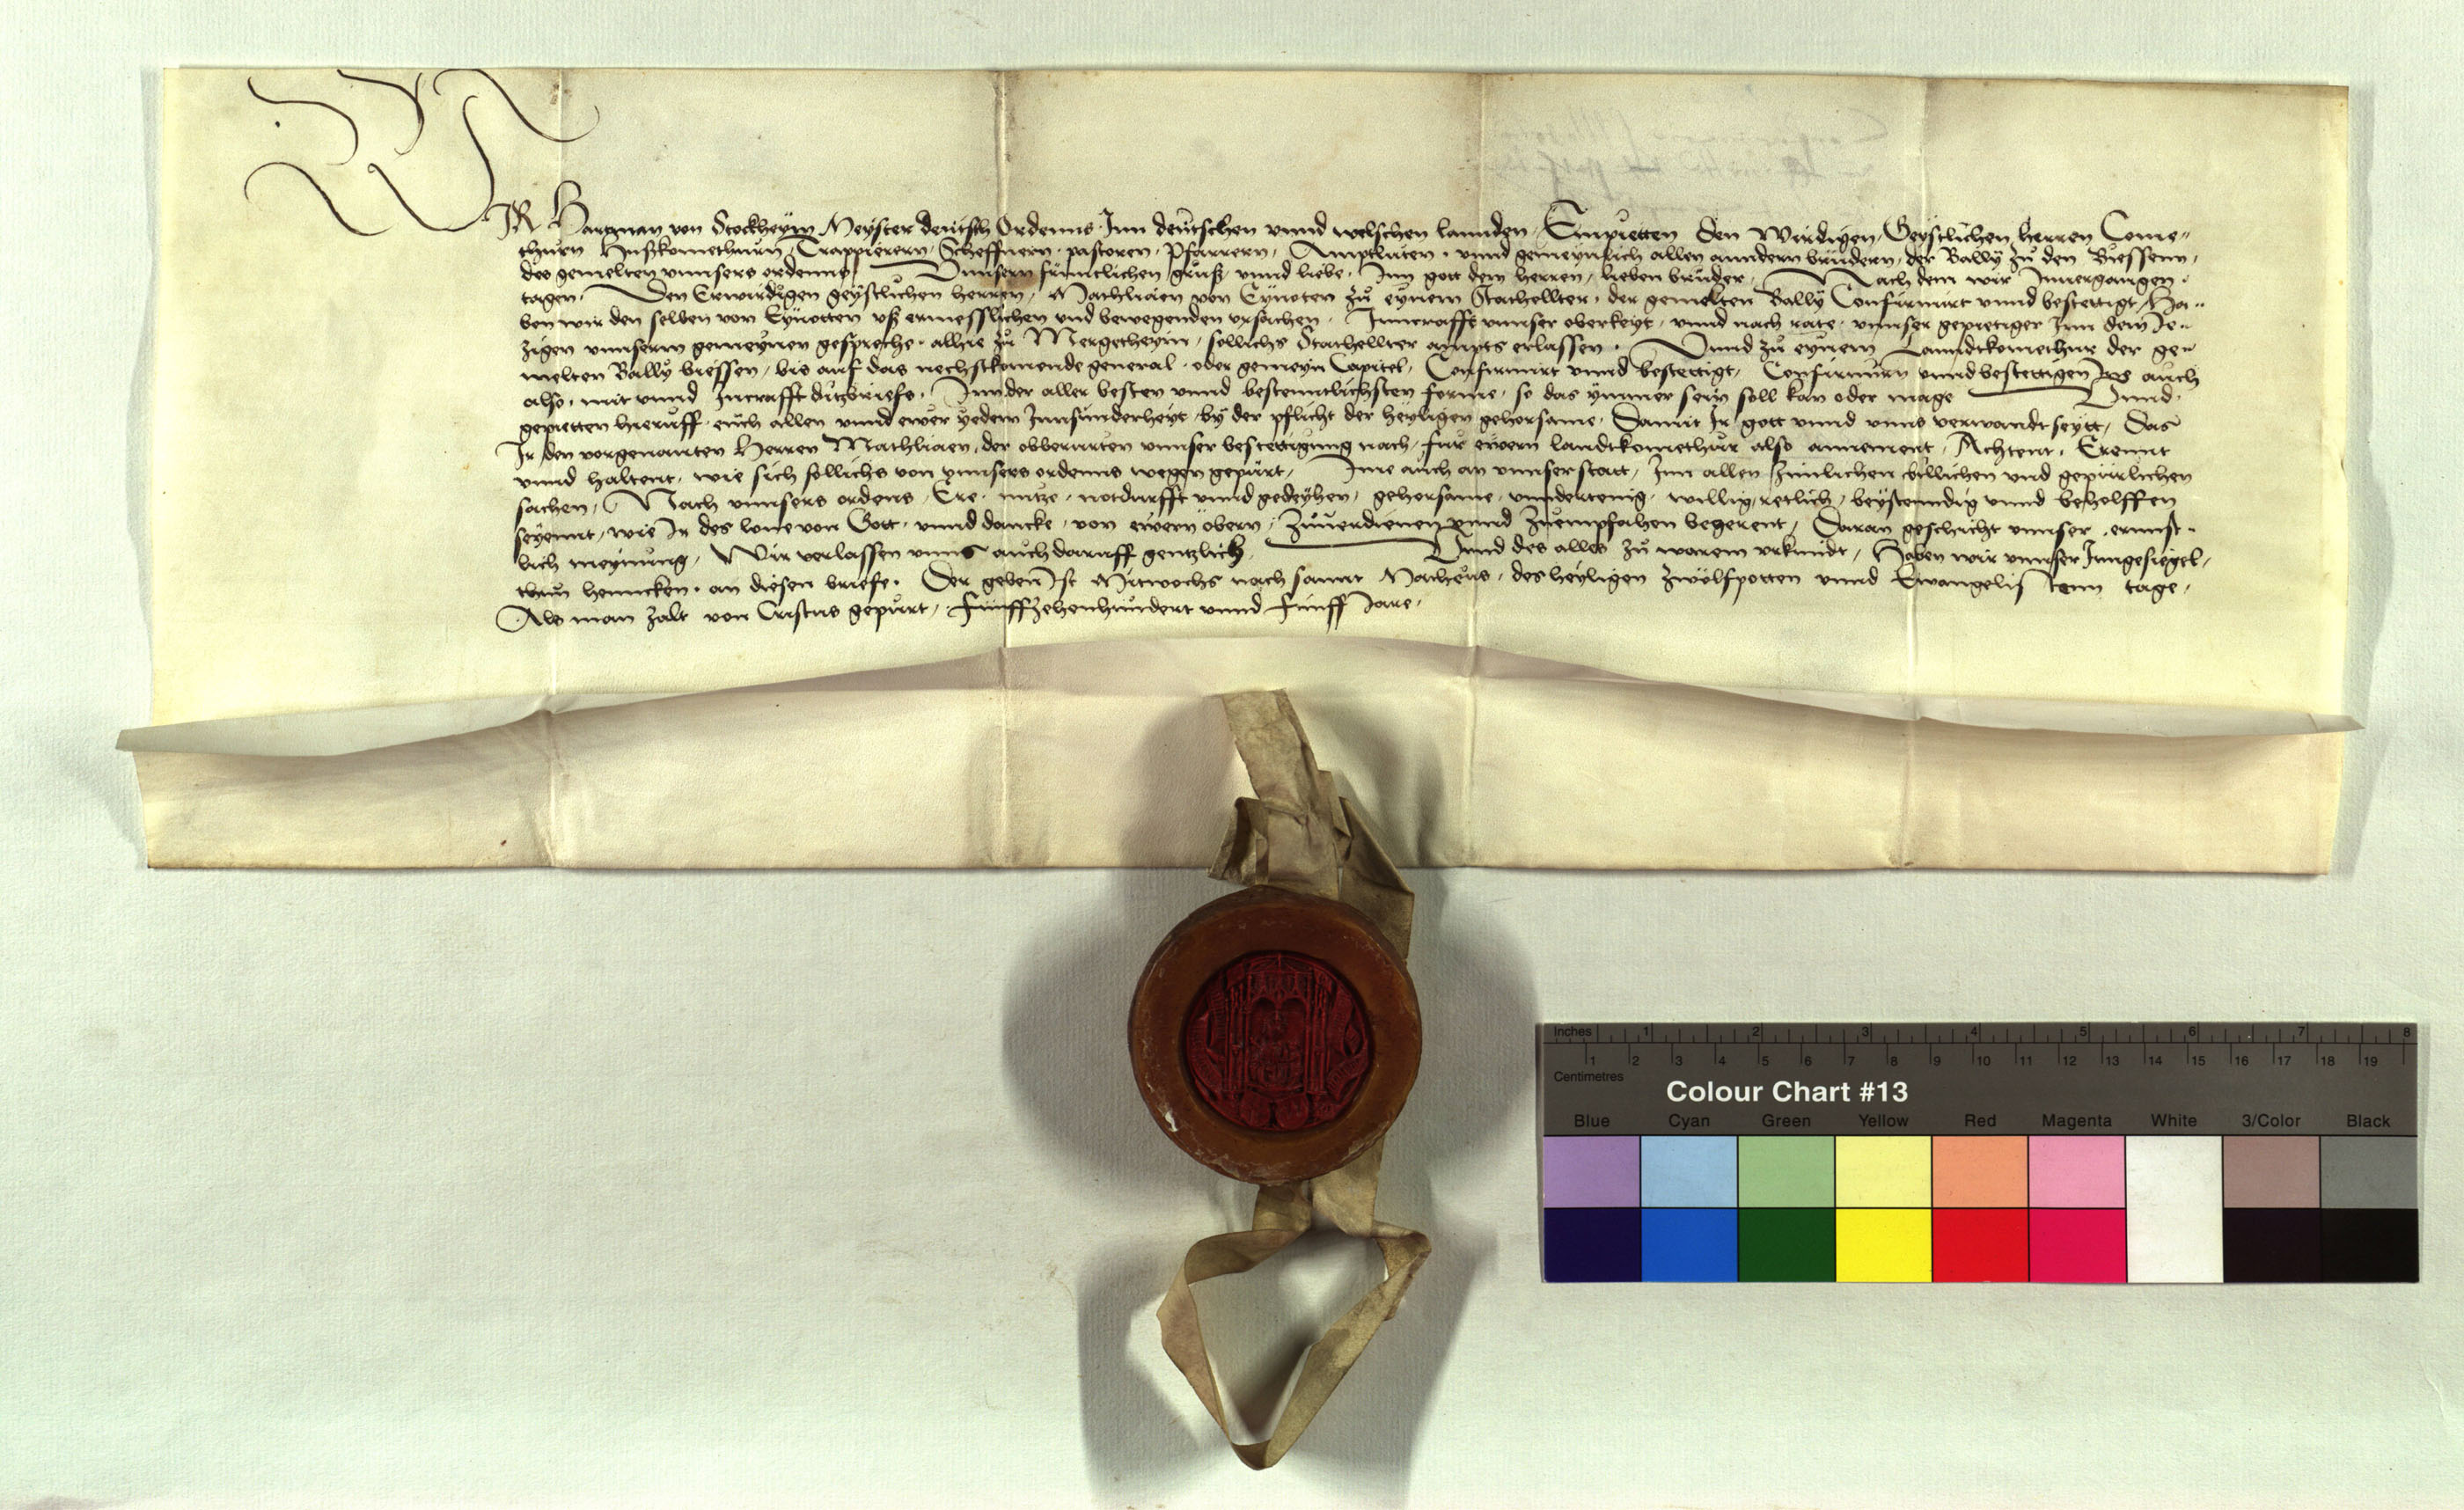 WIR Hartman von Stockheym Meyster deütsch Ordenns Inn deütschen vnnd welschen lannden, Empietten den Wirdigen, Geystlichen herren Come„
thurn Hußkomethurn, Trappierern, Scheffnern, pastoren, Pfarrern, Amptluten, vnnd gemeynlich allen anndern brüdern, der Bally zů den Biessenn,
des gemelten vnnsers ordenns, Vnnsern früntlichen grůß vnnd liebe, Inn gott dem herren, lieben brüder, Nach dem wir Innergangen
tagen, Den Erwirdigen geystlichen herren, Mathliaen von Eynoten zů eynem Stathellter, der gemelten Bally Confirmirt vnnd bestettigt, Ha„
ben wir den selben von Eynotten vß ermesslichen vnd bewegenden vrsachen, Inncrafft vnnser oberkeyt, vnnd nach rate, vnnser gepietiger Inn dem Je„
zigen vnnserm gemeynen gespreche, allhie zů Mergetheym, sollichs Stathellter ampts erlassen, Vnnd zů eynem Lanndtkomethur der ge„
melten Bally biessen, bis auf das nechstkomende general, oder gemeyn Capitel, Confirmirt vnnd bestettigt, Confirmirn vnnd bestettigen Jne auch
also, mit vnnd Incrafft ditzbriefs, Inn der aller besten vnnd bestenntlichsten forme, so das ymmer sein soll kan oder mage Vnnd
gepietten hieruff, eüch allen vnnd ewer yedem Innsünderheyt, by der pflicht der heyligen gehorsame, Damit Ir gott vnnd vnns verwandt seytt, Das
Ir den vorgenanten Herren Mathliaen, der obberurten vnnser bestettigung nach, für ewern landtkomethůr also annement, Achtent, Erennt
vnnd haltent, wie sich sollichs von vnnsers ordenns wegen gepürt, Ime auch an vnnser statt, Inn allen zimlichen billichen vnd gepürlichen
sachen, Nach vnnsers ordens, Ere, nutze, notdurfft vnnd gedeyhen, gehorsame, vnndertenig, willig, retlich, beystenndig vnnd beholffen
seyennt, wie Ir des lone von Gott, vnnd dancke, von ewern obern, zůuerdienen vnnd zůempfahen begerent, Daran geschicht vnnser, ernnst„
lich meynung, Wir verlassen vnns auch daruff gentzlich, Vnnd des alles zů warem vrkundt, Haben wir vnnser Inngesiegel,
thun henncken, an diesen briefe, Der geben Ist Mitwochs nach sannt Matheus, des heyligen zwölfpotten vnnd Ewangelistenn tage,
Als man zalt von Cristus gepůrt, Fünffzehenhundert vnnd Fünff Jare,
Inches 1 2 3 4 5 6 7 8
1 2 3 4 5 6 7 8 9 10 11 12 13 14 15 16 17 18 19
Centimetres
Colour Chart #13
Blue Cyan Green Yellow Red Magenta White 3/Color Black